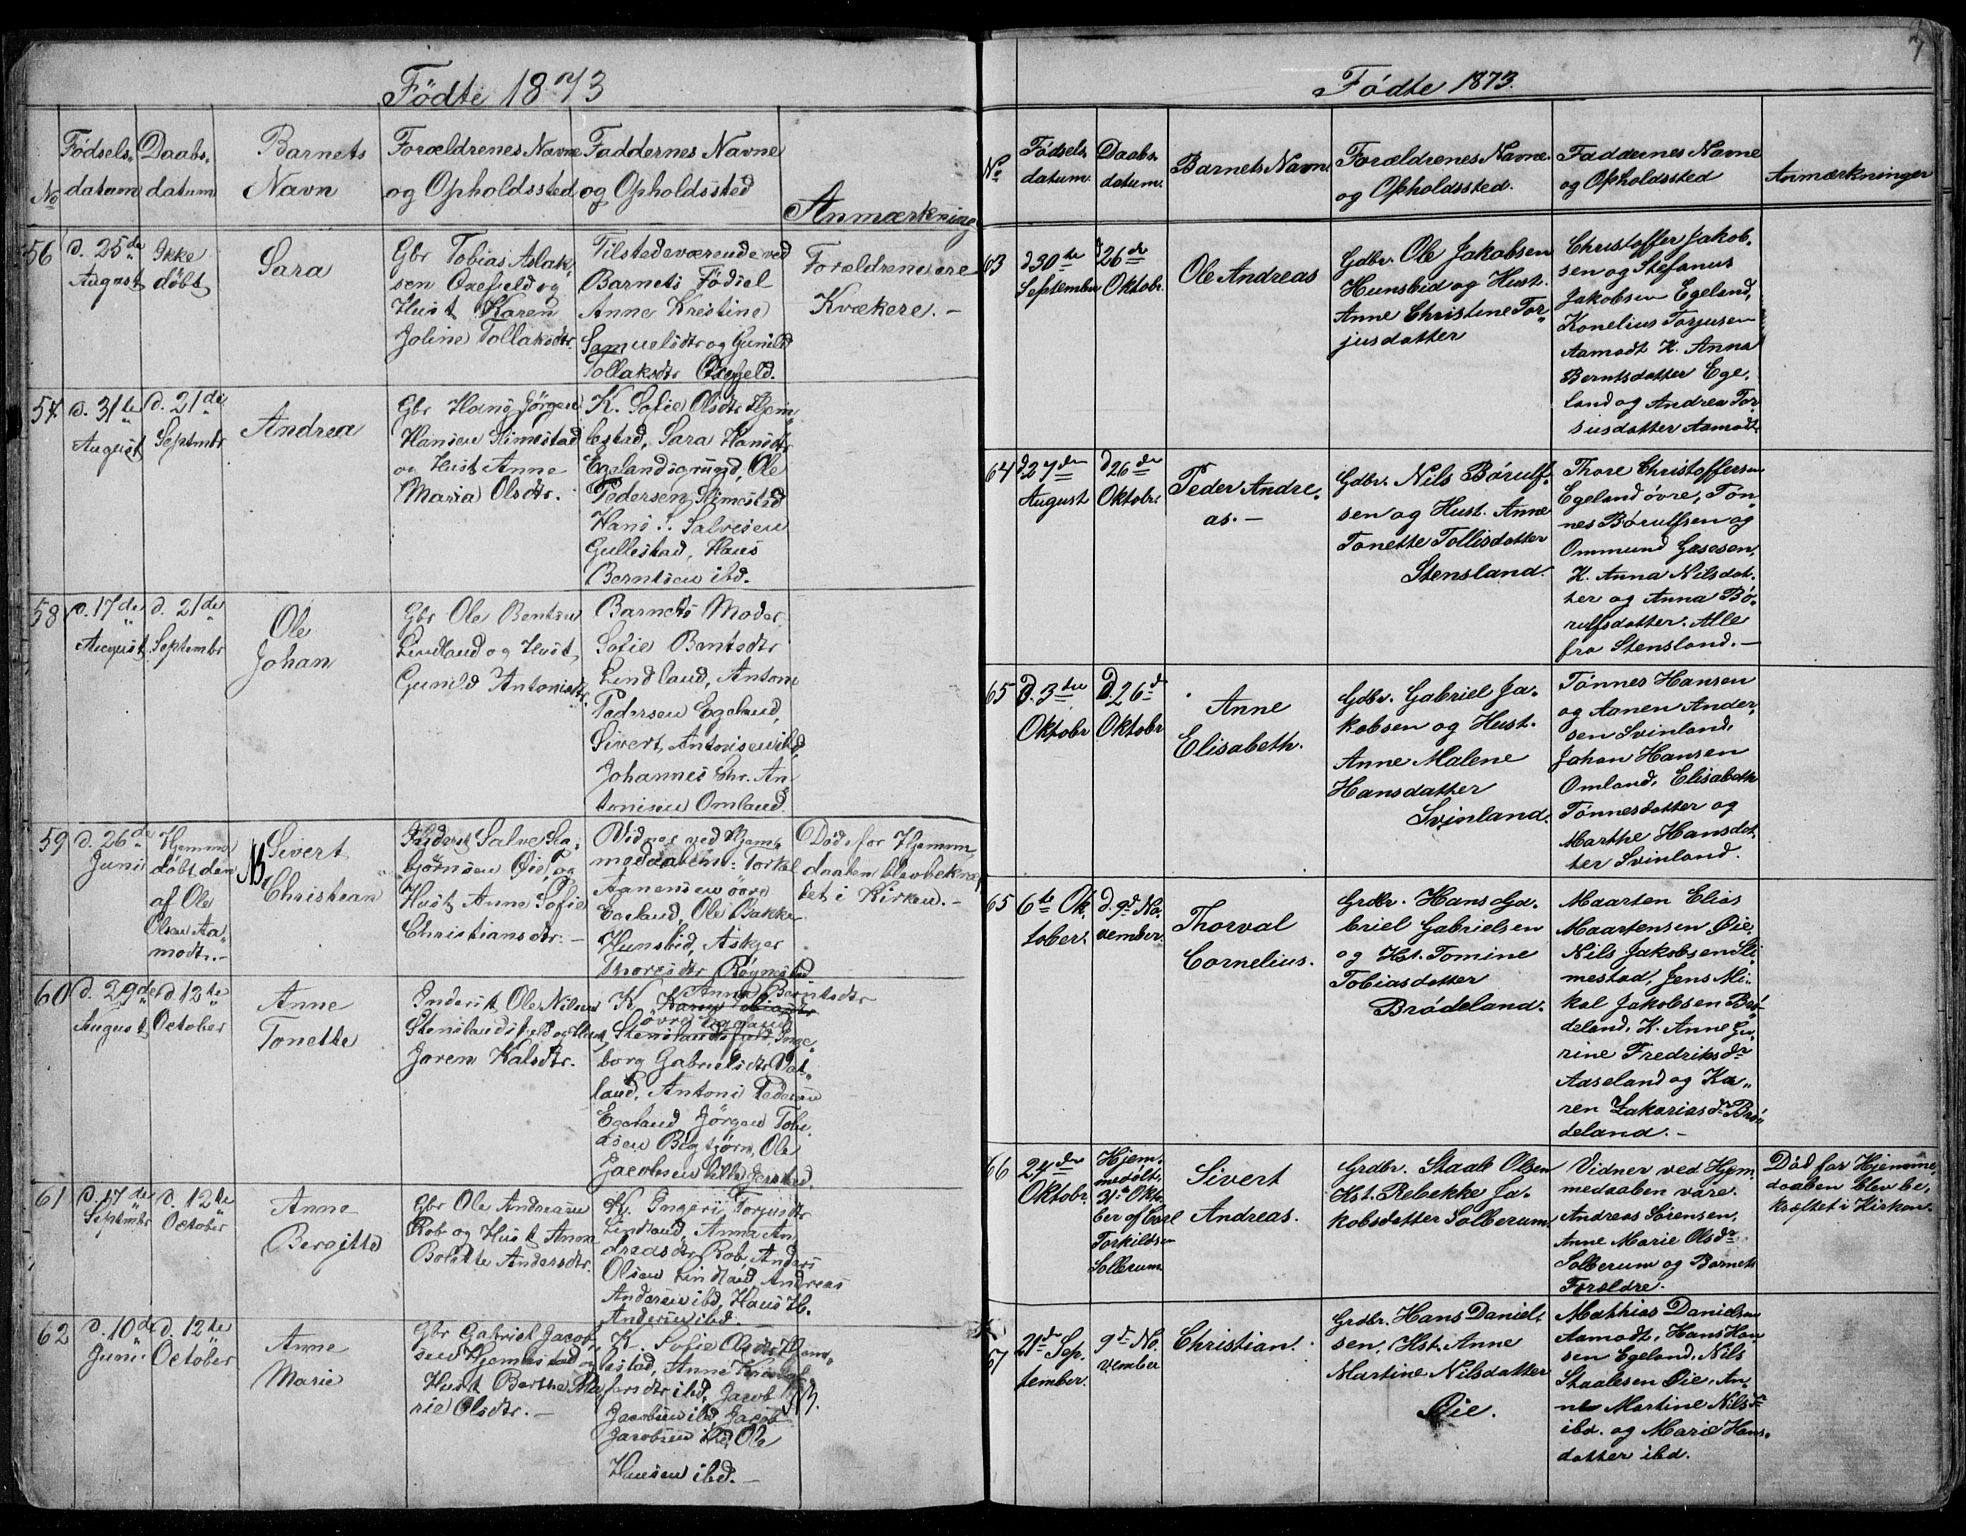 Fødte 1873
No
Fødsels-
datum
Daabs-
datum
Barnets
Navn
Forældrenes Navne
og Opholdssted
Faddernes Navne
og Opholdssted
Anmærkning
56
d. 25de
August
Ikke
døbt
Sara
Gbr Tobias Aslak-
sen Oxefield og
Hust Karen
Joline Tollaksdtr.
Tilstedeværende ved
Barnets Fødsel
Anne Kristine
Samuelsdtr og Gunild
Tollaksdtr
Forældrene ere
Kvækere. -
57
d. 31te
August
d. 21de
Septmbr
Andrea
Gbr Hans Jørgen
Hansen Himestad
og Hust Anne
Maria Olsdtr.
K. Sofie Olsdtr Hjem-
lestad, Sara Hansdtr
Egelandsgrund, Ole
Pedersen Himestad
Hans S. Salvesen
Gullestad, Hans
Berntsen ibd.
58
d. 17de
August
d. 21de
Septembr
Ole
Johan
Gbr Ole Bentsen
Lindland og Hust
Gunild Antonisdtr.
Barnets Moder,
Sofie Bentsdtr
Lindland, Antoni
Pedersen Egeland,
Sivert Antonisen ibd,
Johannes Chr. An-
tonisen Omland.
59
d. 26de
Junii
Hjemme
døbt den
af Ole
Olsen Aa-
modt. -
NB
Sivert
Christian
Inderst Salve Sa-
bjørnsen Øie, og
Hust Anne Sofie
Christiansdtr. -
Vidner ved Hjem-
medaaben: Torkel
Aanensen øvre
Egeland, Ole Bakke-
Hunsbid, Askjer
Thoresdtr Røymstad
Død før Hjemme-
daaben blev bekræf-
tet i Kirken. -
60
d. 29de
August
d. 12te
October
Anne
Tonette
Inderst Ole Nilsen
Stenslandsfjeld og Hust
Joren Kalsdtr.
K. Anna Berntsdtr
øvre Egeland
Stenslandsfjeld, Inge-
borg Gabrielsdtr Vat-
land, Antoni Pedersen
Egeland, Jørgen Tobi-
asen Bigtjørn, Ole
Jacobsen lille Jerstad.
61
d. 17de
Septmbr
d. 12te
October
Anne
Bergitte
Gbr Ole Andreasen
Rob og Hust Anne
Bolette Andersdtr.
K. Ingeri Torjusdtr
Lindland, Anna An-
dreasdtr Rob, Anders
Olsen Lindland, Andreas
Andersen ibd, Hans H.
Andersen ibd. -
62
d. 10de
Junii
d. 12te
October
Anne
Marie
Gbr Gabriel Jacob-
sen Hjemestad og
Hust Berthe Ma-
rie Olsdtr. -
K. Sofie Olsdtr Hjem-
lestad, Anne
ibd, Jacob
Jacobsen ibd, Jacob
Jacobsen ibd, Ole
Hansen ibd. -
NB.
7
Fødte 1873.
No
Fødsels-
datum.
Daabs-
datum.
Barnets Navn
Forældrenes Navne
og Opholdssted.
Faddernes Navne
og Opholdssted
Anmærkninger
63
d 30te
September
d 26de
Oktobr.
Ole Andreas
Gdbr. Ole Jakobsen
Hunsbid og Hust.
Anne Christine Tor-
jusdatter
Christoffer Jakob-
sen og Stefanus
Jakobsen Egeland,
Konelius Torjusen
Aamodt K. Anna
Berntsdatter Ege-
land og Andrea Tor-
jusdatter Aamodt.
64
d 27de
August
d 26de
Oktobr.
Peder Andre-
as. -
Gdbr. Nils Børulf-
sen og Hust. Anne
Tonette Tollisdatter
Stensland.
Thore Christoffersen
Egeland øvre, Tøn-
nes Børulfsen og
Ommund Gasesen,
K. Anna Nilsdat-
ter og Anna Bø-
rulfsdatter. Alle
fra Stensland. -
65
d. 3die
Oktobr
d. 26de
Oktobr
Anne
Elisabeth.
Gdbr. Gabriel Ja-
kobsen og Hust.
Anne Malene
Hansdatter
Svinland.
Tønnes Hansen
og Aanen Ander-
sen Svinland,
Johan Hansen
Omland, Elisabeth
Tønnesdatter og
Marthe Hansdat-
ter Svinland.
65
6te Ok-
tober.
d. 9de No-
vember.
Thorval
Cornelius.
Grdbr. Hans Ga-
briel Gabrielsen
og Hst. Tomine
Tobiasdatter
Brødeland.
Maarten Elias
Maartensen Øie,
Nils Jakobsen Sli-
mestad, Jens Mi-
kal Jakobsen Brø-
deland, K. Anne Gu-
rine Fredriksdr
Aaseland og Ka-
ren Zakariasdr Brø-
deland. -
66
24de
Oktobr.
Hjem-
medøbt
31te Okto-
ber af Carl
Torkildsen
Solberum
Sivert
Andreas.
Grdbr. Staale Olsen
Hst. Rebekke Ja-
kobsdatter Solberum.
Vidner ved Hjem-
medaaben vare.
Andreas Sørensen,
Anne Marie Olsdr
Solberum og Barnets
Forældre.
Død før Hjemme-
daaben blev be-
kræftet i Kirken.
67
21de Sep-
tember.
9de No-
vember
Christian.
Grdbr. Hans Daniel-
sen, Hst. Anne
Martine Nilsdatter
Øie.
Mathias Danielsen
Aamodt, Hans Han-
sen Egeland, Nils
Staalesen Øie, An-
ne Martine Nilsdr
ibd. og Marie Hans-
datter ibd.